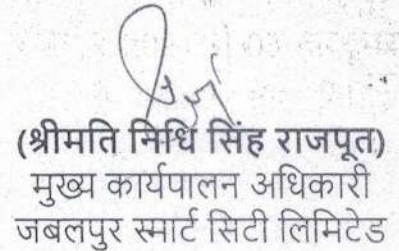 (श्रीमति निधि सिंह राजपूत)
मुख्य कार्यपालन अधिकारी
जबलपुर स्मार्ट सिटी लिमिटेड